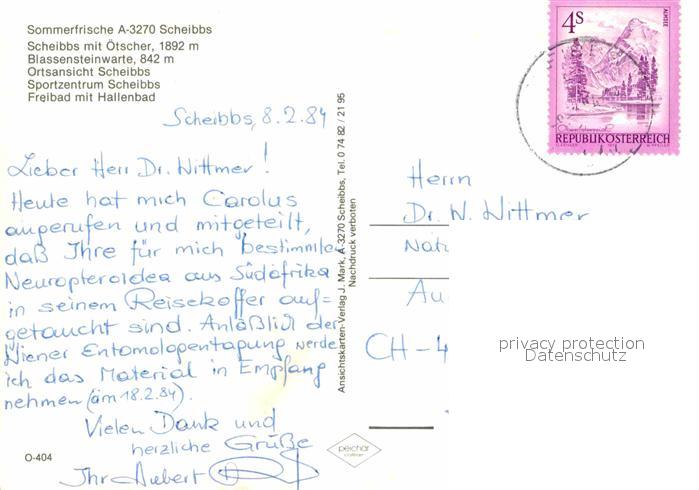 Sommerfrische A-3270 Scheibbs
Scheibbs mit Ötscher, 1892 m
Blassensteinwarte, 842 m
Ortsansicht Scheibbs
Sportzentrum Scheibbs
Freibad mit Hallenbad
Scheibbs, 8.2.84
Lieber Herr Dr. Wittmer!
Heute hat mich Carolus
angerufen und mitgeteilt,
daß Ihre für mich bestimmten
Neuropteroidea aus Südafrika
in seinem Reisekoffer auf=
getaucht sind. Anläßlich der
Wiener Entomologentagung werde
ich das Material in Empfang
nehmen (am 18.2.84).
Vielen Dank und
herzliche Grüße
Ihr Aubert
O-404
Ansichtskarten-Verlag J. Mark, A-3270 Scheibbs, Tel. 0 74 82 / 21 95
Nachdruck verboten
peichar
4S
ALMSEE
REPUBLIK ÖSTERREICH
Herrn
Dr. W. Wittmer
Nat
Au
CH-4
privacy protection
Datenschutz